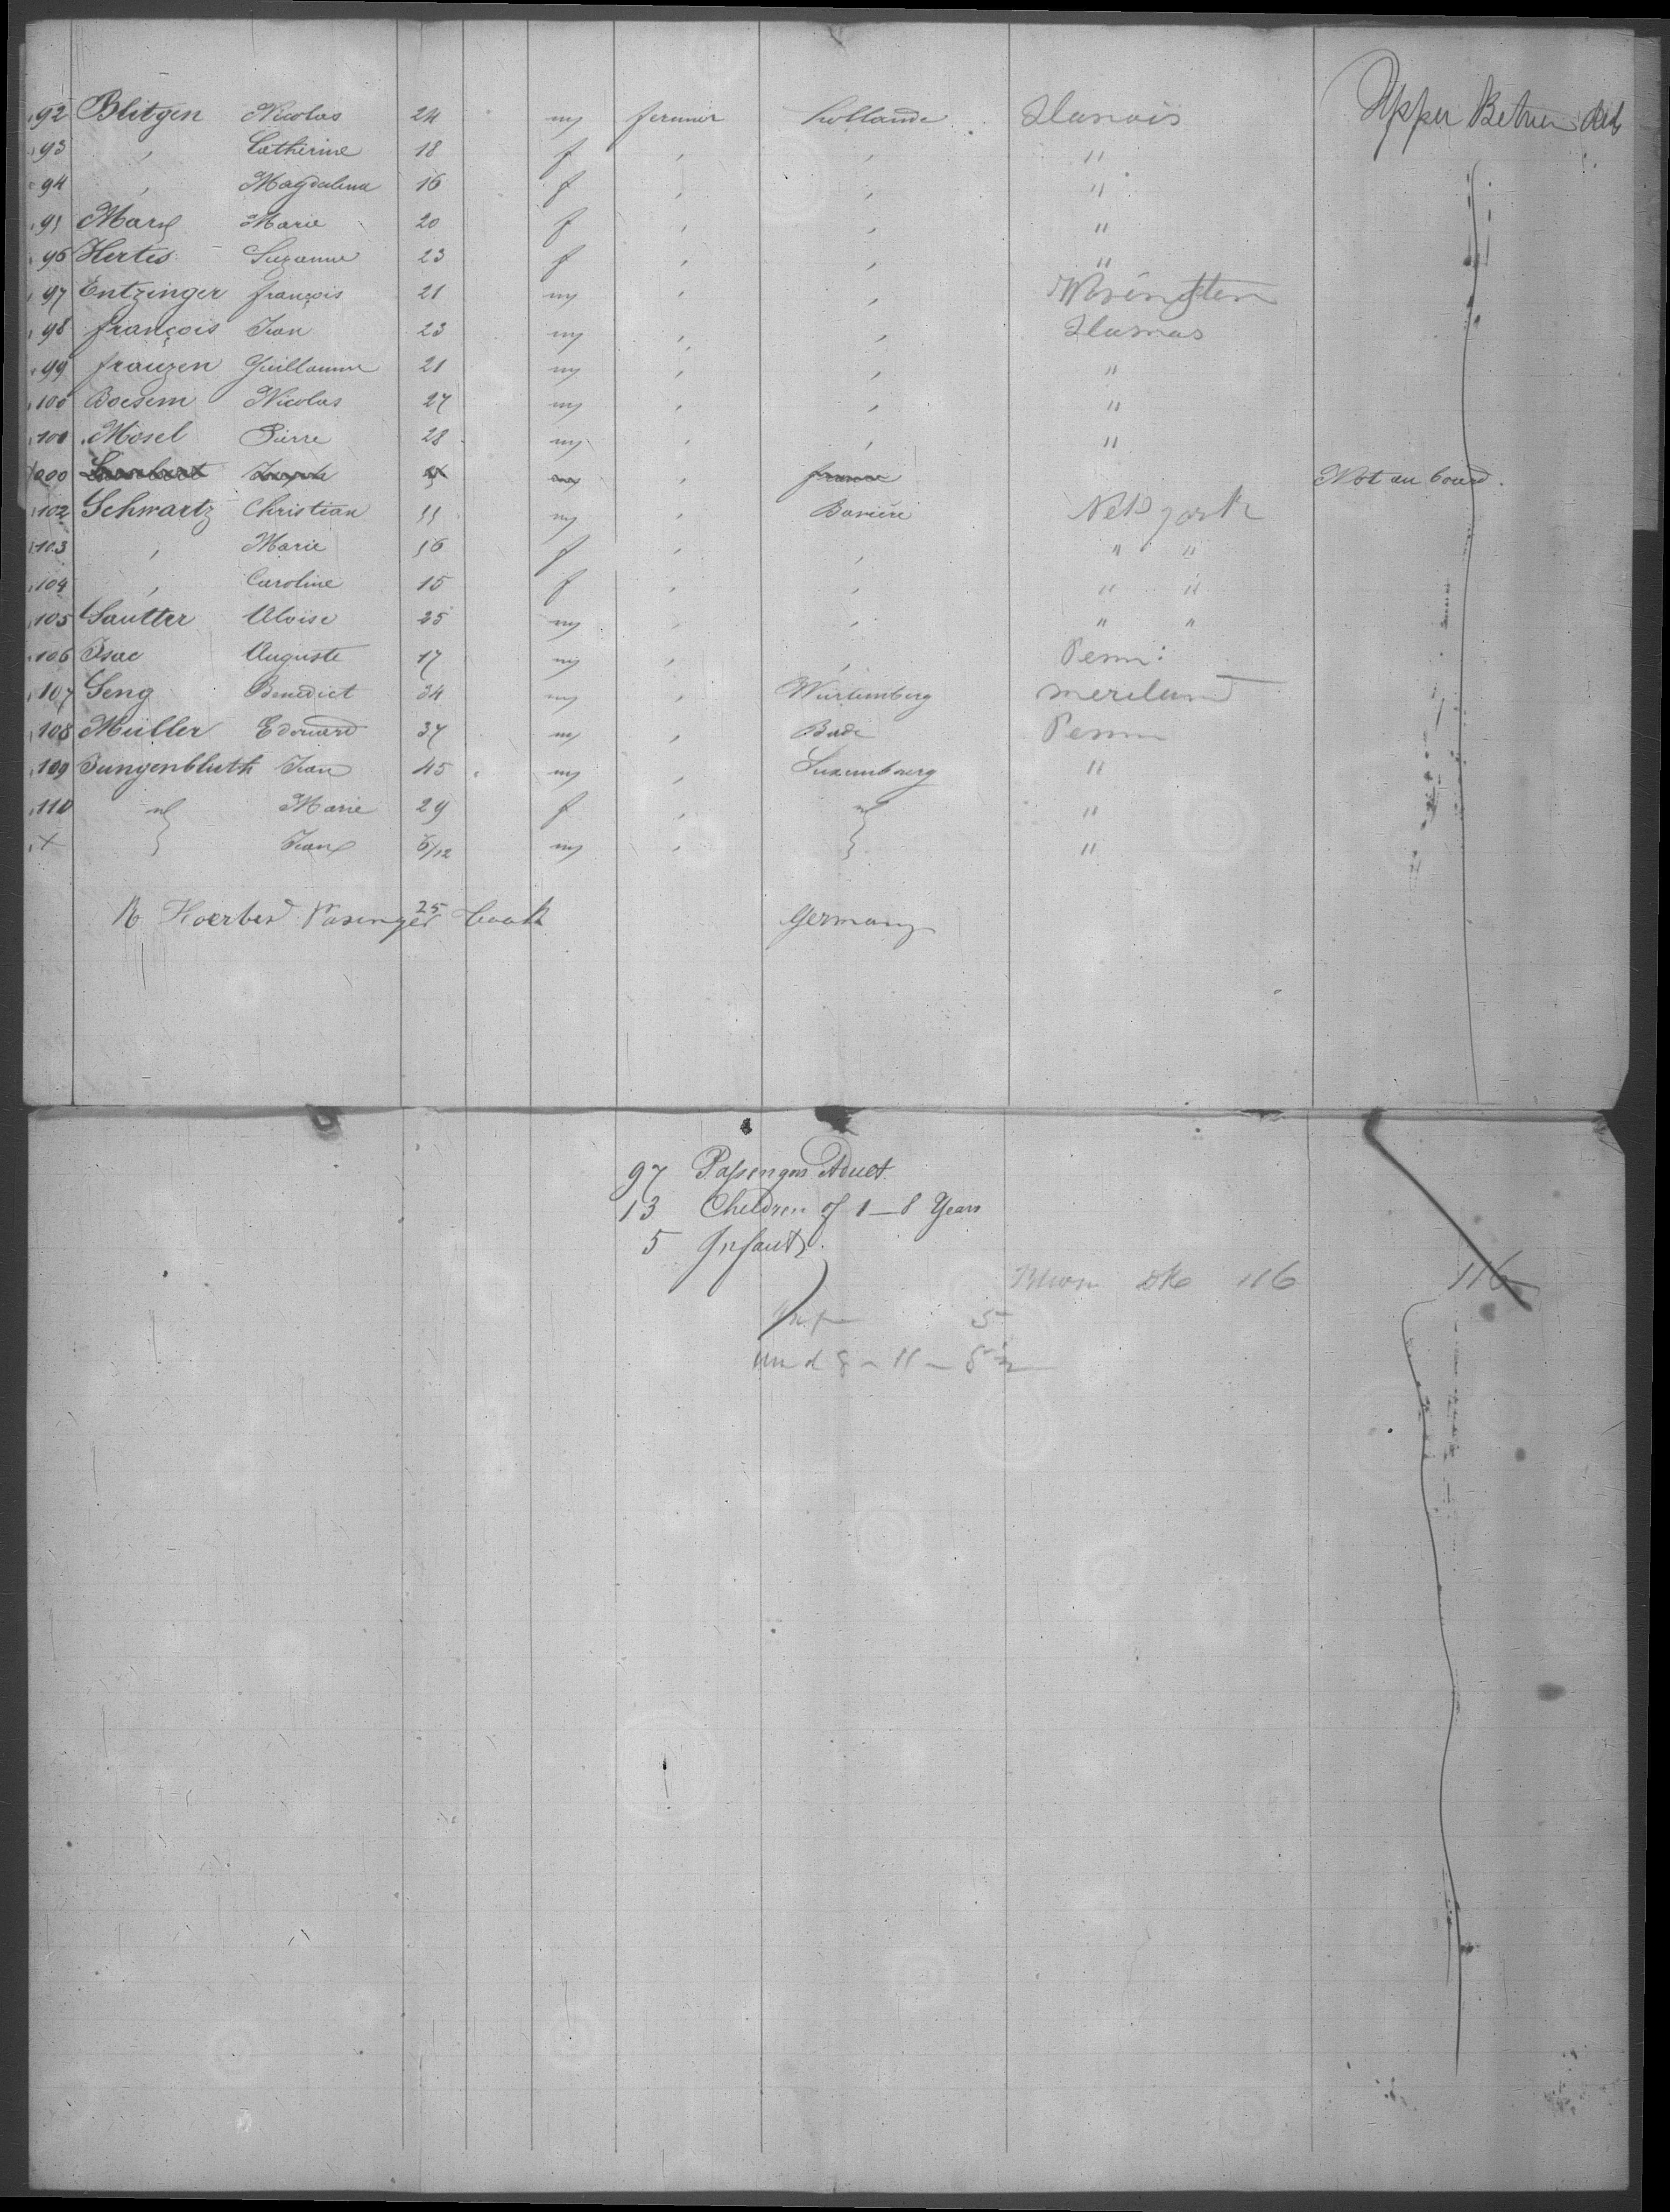 92 Blitgen Nicolas 24 m fermier hollande Ilanois Upper Betwen deck
93 , Catherine 18 f , , "
94 , Magdalena 16 f , , "
95 Marx Marie 20 f , , "
96 Hertes Suzanne 23 f , , "
97 Entzinger françois 21 m , ,
98 françois Jean 23 m , ,
99 frauzen Guillaume 21 m , , "
100 Boesem Nicolas 27 m , , "
101 Mosel Pierre 28 m , , "
Joseph m france Not an board.
102 Schwartz Christian 55 m , Baviére New york
103 , Marie 56 f , , " "
104 , Caroline 15 f , , " "
105 Sautter Aloise 25 m , , " "
106 Isac Auguste 17 m , , Penn:
107 Seng Benedict 34 m , Würtemberg Mereland
108 Müller Edouard 37 m , Bade Penn
109 Jungenbluth Jean 45 m , Luxembourg "
110 " Marie 29 f , " "
+ Jean 6/12 m , "
Pasenger Cook 25 Germany
97 Passengers Aduet.
13 Children of 1–8 Years
5 Infants.
116 116
5